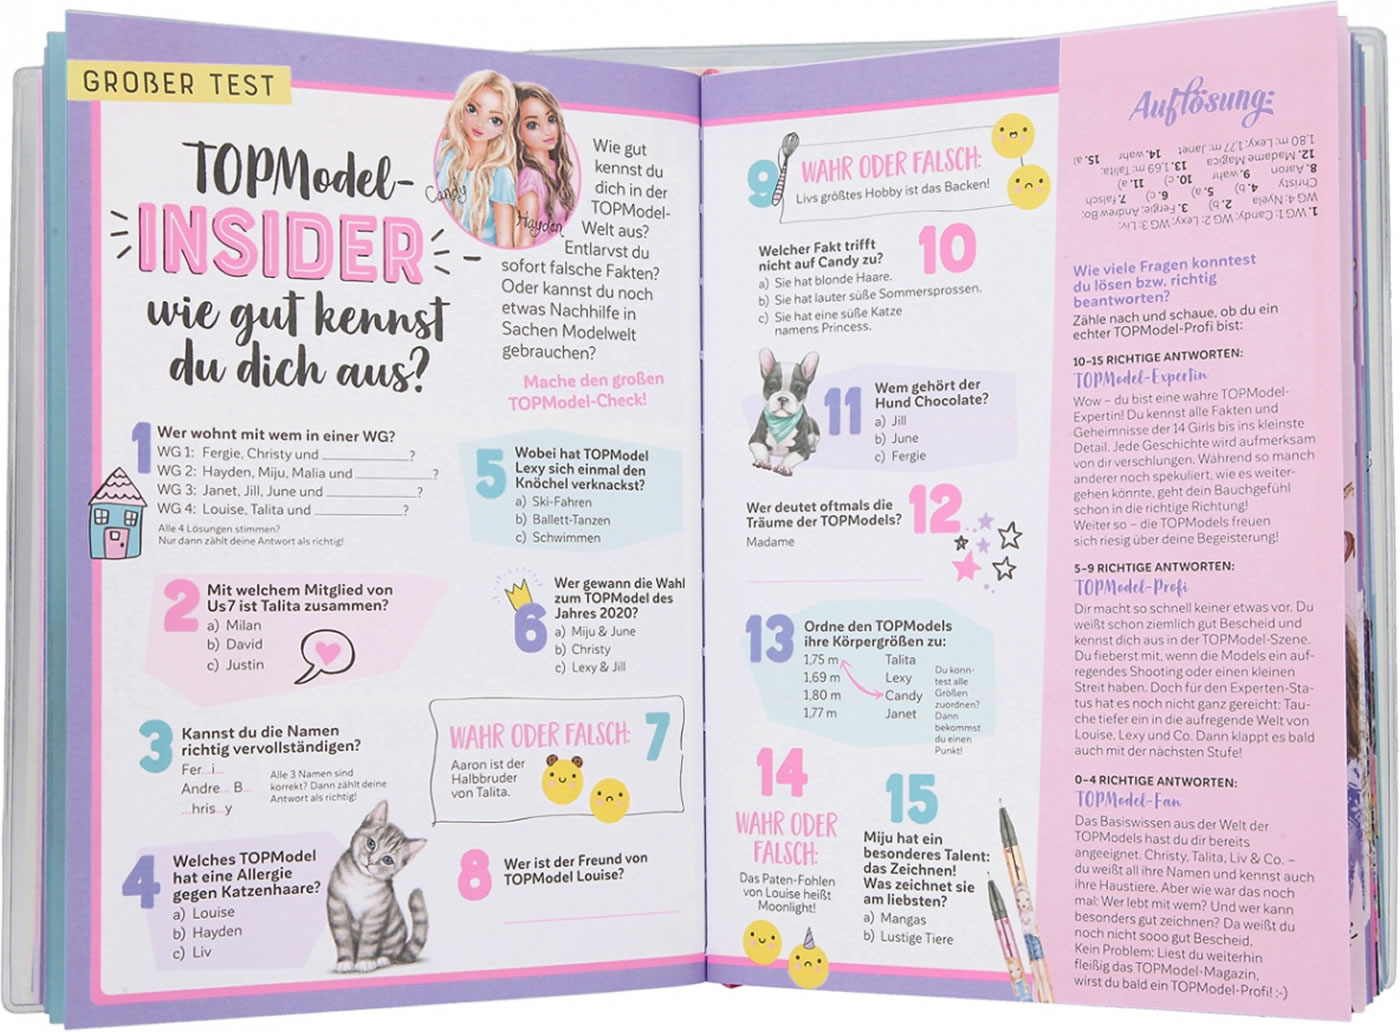 GROßER TEST
TOPModel-
INSIDER
wie gut kennst
du dich aus?
Candy
Hayden
Wie gut
kennst du
dich in der
TOPModel-
Welt aus?
Entlarvst du
sofort falsche Fakten?
Oder kannst du noch
etwas Nachhilfe in
Sachen Modelwelt
gebrauchen?
Mache den großen
TOPModel-Check!
1 Wer wohnt mit wem in einer WG?
WG 1: Fergie, Christy und ____________?
WG 2: Hayden, Miju, Malia und ____________?
WG 3: Janet, Jill, June und ____________?
WG 4: Louise, Talita und ____________?
Alle 4 Lösungen stimmen?
Nur dann zählt deine Antwort als richtig!
2 Mit welchem Mitglied von
Us7 ist Talita zusammen?
a) Milan
b) David
c) Justin
3 Kannst du die Namen
richtig vervollständigen?
Fer...i...
Andre... B...
...hris...y
Alle 3 Namen sind
korrekt? Dann zählt deine
Antwort als richtig!
4 Welches TOPModel
hat eine Allergie
gegen Katzenhaare?
a) Louise
b) Hayden
c) Liv
5 Wobei hat TOPModel
Lexy sich einmal den
Knöchel verknackst?
a) Ski-Fahren
b) Ballett-Tanzen
c) Schwimmen
6 Wer gewann die Wahl
zum TOPModel des
Jahres 2020?
a) Miju & June
b) Christy
c) Lexy & Jill
WAHR ODER FALSCH: 7
Aaron ist der
Halbbruder
von Talita.
8 Wer ist der Freund von
TOPModel Louise?
9 WAHR ODER FALSCH:
Livs größtes Hobby ist das Backen!
10
Welcher Fakt trifft
nicht auf Candy zu?
a) Sie hat blonde Haare.
b) Sie hat lauter süße Sommersprossen.
c) Sie hat eine süße Katze
namens Princess.
11 Wem gehört der
Hund Chocolate?
a) Jill
b) June
c) Fergie
Wer deutet oftmals die
Träume der TOPModels? 12
Madame
13 Ordne den TOPModels
ihre Körpergrößen zu:
1,75 m Talita
1,69 m Lexy
1,80 m Candy
1,77 m Janet
Du konn-
test alle
Größen
zuordnen?
Dann
bekommst
du einen
Punkt!
14
WAHR ODER
FALSCH:
Das Paten-Fohlen
von Louise heißt
Moonlight!
15
Miju hat ein
besonderes Talent:
das Zeichnen!
Was zeichnet sie
am liebsten?
a) Mangas
b) Lustige Tiere
Auflösung:
1. WG 1: Candy; WG 2: Lexy; WG 3: Liv;
WG 4: Nyela 2. b) 3. Fergie; Andrew Bo;
Christy 4. b) 5. a) 6. c) 7. falsch
8. Aaron 9. wahr 10. c) 11. a)
12. Madame Magica 13. 1,69 m: Talita;
1,80 m: Lexy; 1,77 m: Janet 14. wahr 15. a)
Wie viele Fragen konntest
du lösen bzw. richtig
beantworten?
Zähle nach und schaue, ob du ein
echter TOPModel-Profi bist:
10–15 RICHTIGE ANTWORTEN:
TOPModel-Expertin
Wow – du bist eine wahre TOPModel-
Expertin! Du kennst alle Fakten und
Geheimnisse der 14 Girls bis ins kleinste
Detail. Jede Geschichte wird aufmerksam
von dir verschlungen. Während so manch
anderer noch spekuliert, wie es weiter-
gehen könnte, geht dein Bauchgefühl
schon in die richtige Richtung!
Weiter so – die TOPModels freuen
sich riesig über deine Begeisterung!
5–9 RICHTIGE ANTWORTEN:
TOPModel-Profi
Dir macht so schnell keiner etwas vor. Du
weißt schon ziemlich gut Bescheid und
kennst dich aus in der TOPModel-Szene.
Du fieberst mit, wenn die Models ein auf-
regendes Shooting oder einen kleinen
Streit haben. Doch für den Experten-Sta-
tus hat es noch nicht ganz gereicht: Tau-
che tiefer ein in die aufregende Welt von
Louise, Lexy und Co. Dann klappt es bald
auch mit der nächsten Stufe!
0–4 RICHTIGE ANTWORTEN:
TOPModel-Fan
Das Basiswissen aus der Welt der
TOPModels hast du dir bereits
angeeignet. Christy, Talita, Liv & Co. –
du weißt all ihre Namen und kennst auch
ihre Haustiere. Aber wie war das noch
mal: Wer lebt mit wem? Und wer kann
besonders gut zeichnen? Da weißt du
noch nicht sooo gut Bescheid.
Kein Problem: Liest du weiterhin
fleißig das TOPModel-Magazin,
wirst du bald ein TOPModel-Profi! :-)